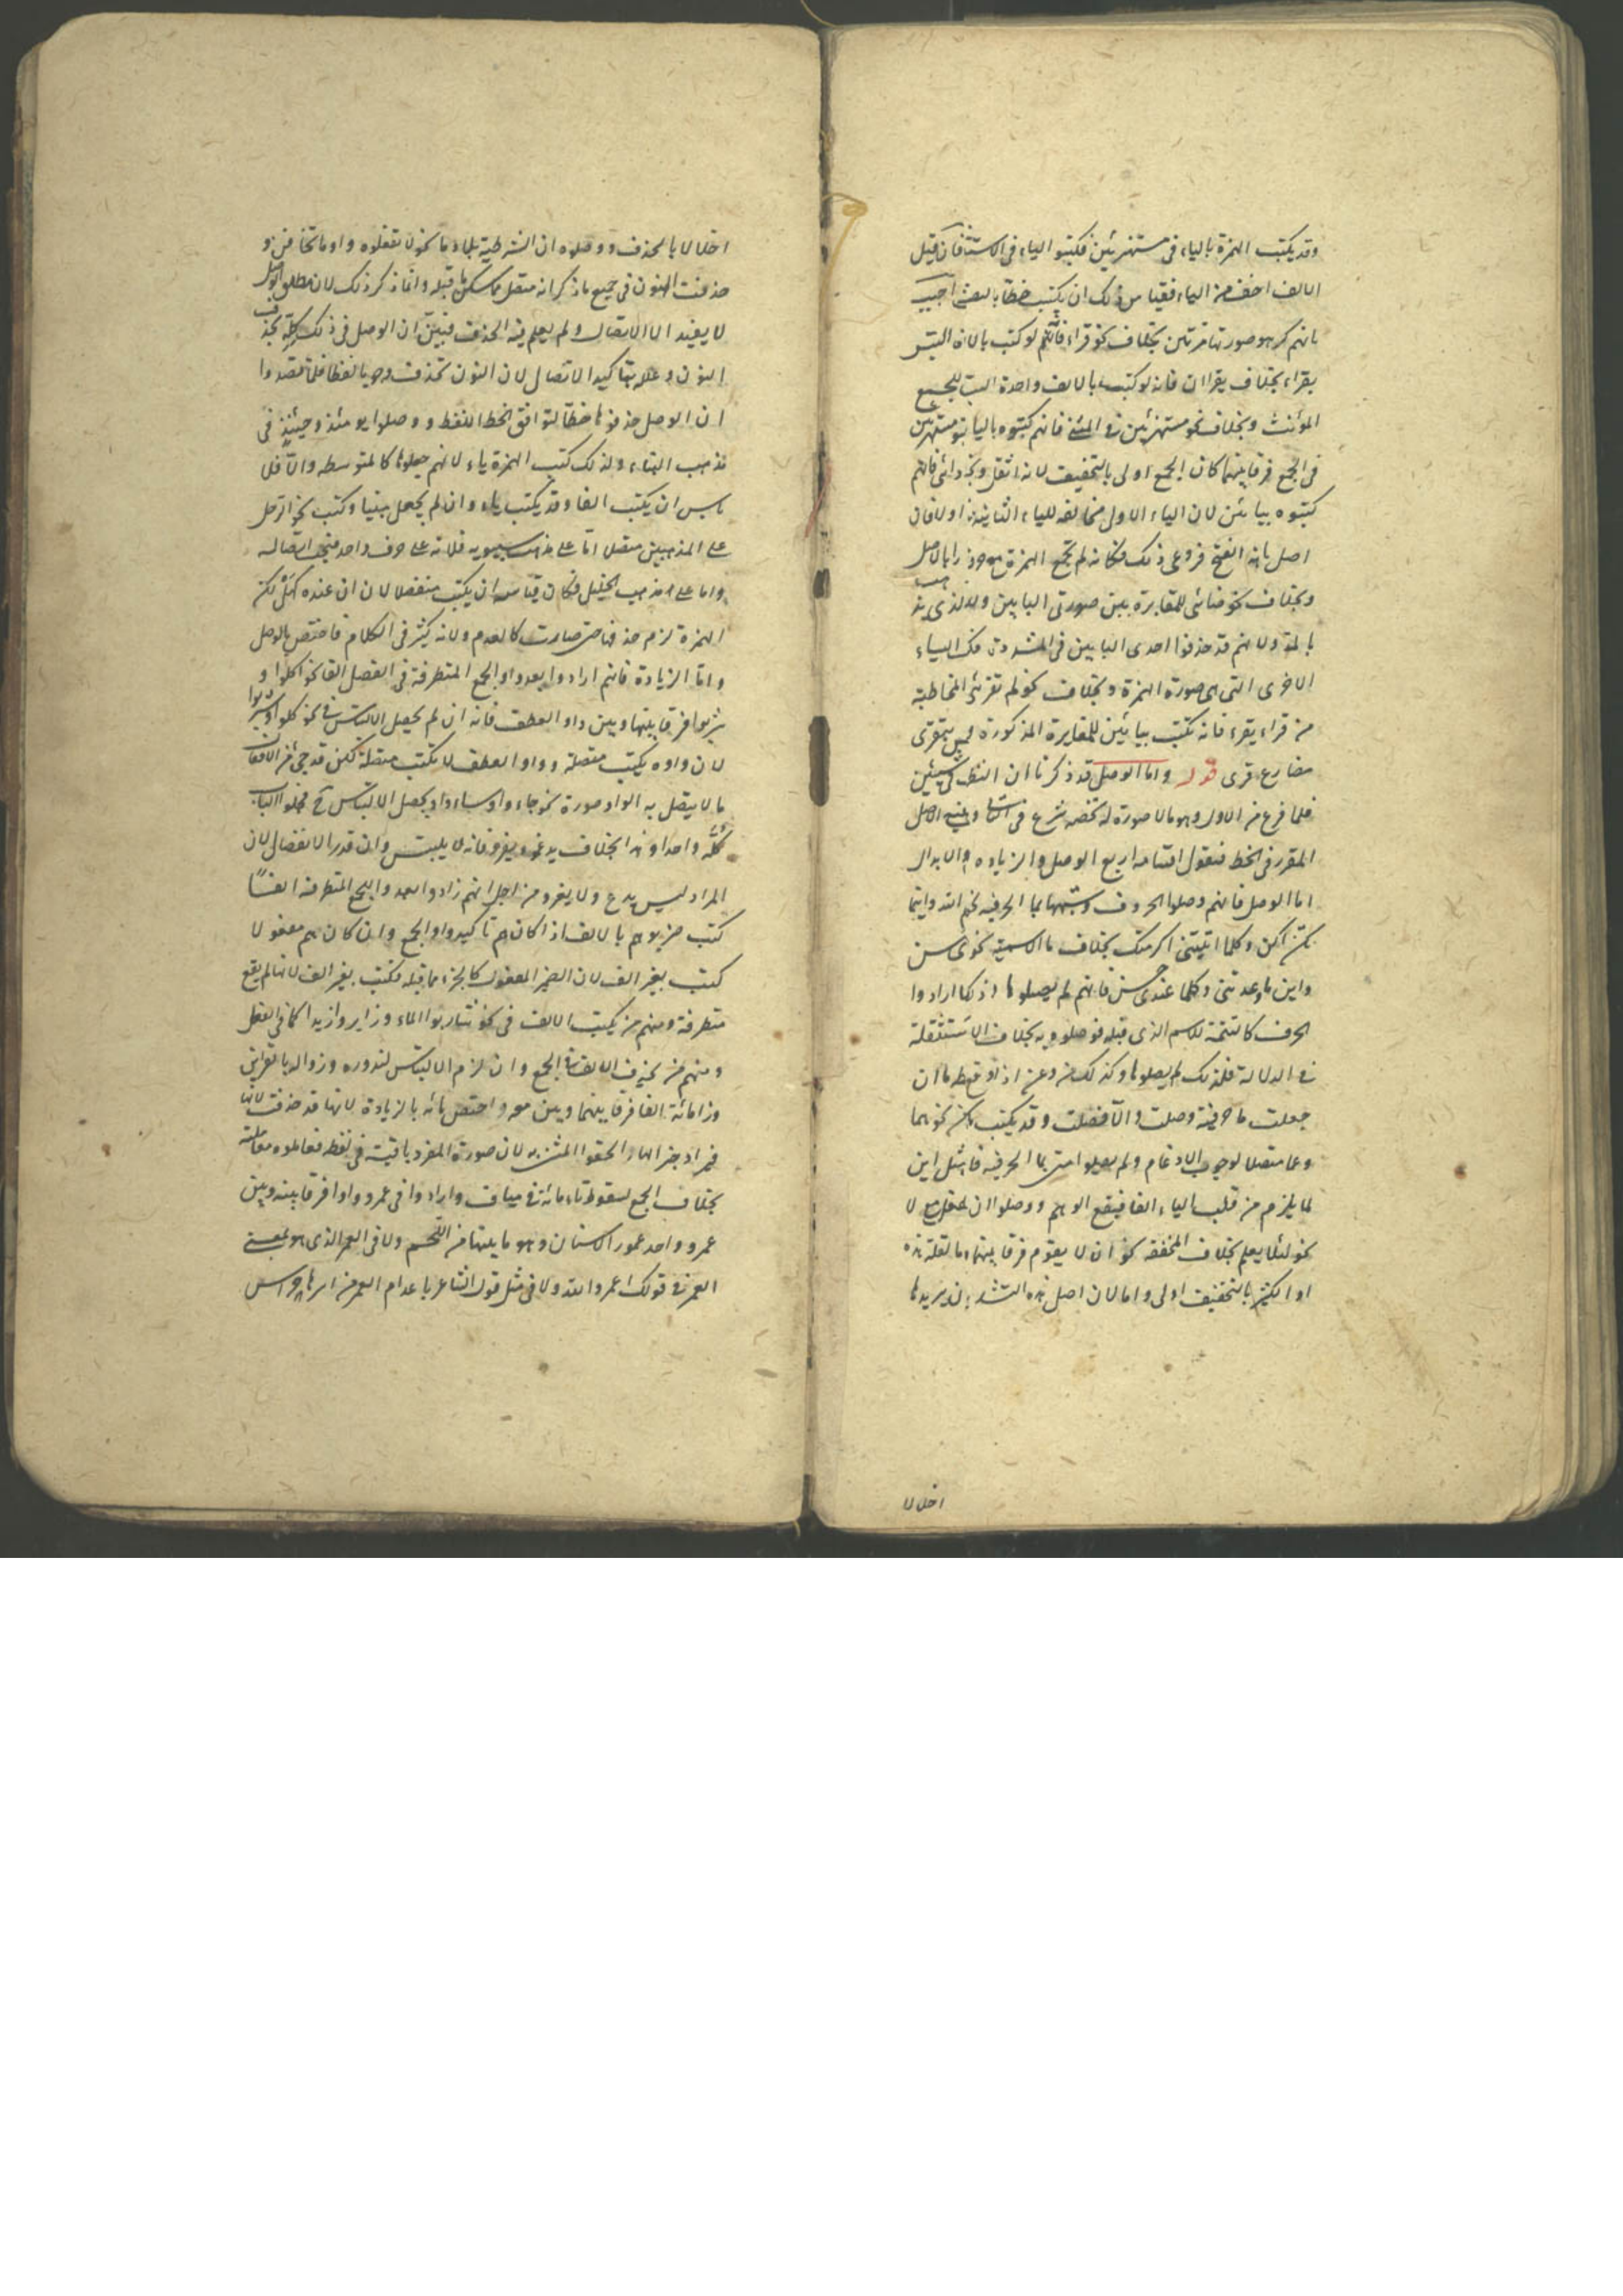 وقد يكتب الهمزة بالياء فى مستهزئين فكتبوا الياء فى الاستثقال قيل
الالف اخف من الياء فقياس ذلك ان يكتب خطا بالعين اجيب
بانهم كرهو صورتها مرتين بخلاف نحو قراء فانهم لو كتب بالف التبس
بقراء بخلاف يقراان فانه لو كتب بالف واحدة التبس بجمع
المؤنث وبخلاف نحو مستهزئين فى المثنى فانهم كتبوه باليا مستهزئين
فى الجمع فرقا بينهما كان الجمع اولى بالتخفيف لانه اثقل ونحو ردائى فانهم
كتبوه بيائين لان الياء الاول مخالفه للياء الثانية اولا فان
اصل يائه الفتح فروعى ذلك فكانه لم تجمع الهمزة
وبخلاف نحو حنائى للمغايرة بين صورتى اليايين
بالمد ولانهم قد حذفوا احدى اليايين فى المشددة فك الياء
الاخرى التى هى صورة الهمزة وبخلاف نحو لم تقرئى للمخاطبة
من قراء يقرء فانه تكتب بيائين للمغايرة المذكورة بتقرى
مضارع قرى قوله واما الوصل قد ذكرنا ان النظر فى شيئين
فلما فرغ من الاول وهو مالا صورة له تخصه شرع فى
المقرر فى الخط فنقول اقسامه اربع الوصل والزيادة والابدال
اما الوصل فانهم وصلوا الحروف وشبهها بما الحرفية نحو انما الله واينما
تكن اكن وكلما اتيتنى اكرمتك بخلاف ما الاسمية نحو
واين ما وعدتنى وكلما عندى حسن فانهم لم يصلوها اذ كما ارادوا
الحرف كالتتمة للاسم الذى قبله فوصلوه به بخلاف الاستقلة
فى الدلالة فلذلك لم يصلوها وكذلك من وعن اذا وقع بعدهما ان
جعلت ما حرفية وصلت والا فصلت وقد يكتب نحوهما
وعما متصلا لوجوب الادغام ولم يصلوا متى بما الحرفية فى مثل اين
لما يلزم من قلب الياء الفا فيقع الوهم ووصلوا ان مع لا
نحو لئلا يعلم بخلاف المخففة نحو ان لا يقوم فرقا بينهما
او الكثير بالتخفيف اولى واما لان اصل هذه التشديد
اخلالا
اخلالا بالحذف ووصلوه ان الشرطية بلا وما نحو لا تفعلوه واما تخافن و
حذفت النون فى جميع ماذكر انه متصل ما سكن ما قبله وانما ذكر ذلك لان مطلق الوصل
لا يفيد الا الاتصال ولم يعلم فيه الحذف فبين ان الوصل فى ذلك كله بحذف
النون وعلله بتاكيد الاتصال لان النون تحذف وجوبا لفظا فلما قصدوا
ان الوصل حذفوها خطا لتوافق الخط اللفظ ووصلوا يومئذ وحينئذ فى
مذهب البناء ولذلك كتب الهمزة ياء لانهم جعلوها كالمتوسطه والا فلا
ياس ان يكتب الفا وقد يكتب ياء وان لم يجعل بينا وكتب نحو الرجل
على المذهبين متصلا اما على مذهب سيبويه فلانه على حرف واحد فيجب اتصاله
واما على مذهب الخليل فكان قياسه ان يكتب منفصلا لان ان عنده كهل لكن
الهمزة لزم حذفها حتى صارت كالعدم ولانه يكثر فى الكلام فاختص بالوصل
واما الزيادة فانهم ارادوا بعد واو الجمع المتطرفة فى الفعل الفا نحو اكلوا و
شربوا فرقا بينها وبين واو العطف فانه ان لم يحصل الالتباس فى نحو كلوا وشربوا
لان واوه يكتب متصلة وواو العطف لا تكتب متصلة لكن قد جى من الافعال
ما لا يتصل به الواو صورة نحو جاءوا وساءوا ويحصل الالتباس ح فجعلوا الباب
كله واحدا وهذا بخلاف يدعو ويغزو فانه لا يلتبس وان قدر الانفصال لان
المراد ليس يدع ولا يغزو من اجل انهم زادوا بعد واو الجمع المتطرفة الفا
كتب ضربوا هم بالف اذا كان هم تاكيد واو الجمع وان كان هم مفعولا
كتب بغير الف لان الضمير المفعول كالجزء مما قبله فكتب بغير الف لانها لم يقع
متطرفة ومنهم من يكتب الالف فى نحو شاربوا الماء وزايروا زيدا كما فى الفعل
ومنهم من يحذف الالف فى الجمع وان لزم الالتباس لندوره وزواله بالقراين
وزاد مائة الفا فرقا بينهما وبين منه واختص مائه بالزيادة لانها قد حذفت لامها
فجبر الحقوا المثنى به لان صورة المفرد باقية فى لفظه فعاملوه معاملته
بخلاف الجمع لسقوط تاء مائة فى ميات وارادوا فى عمرو واوا فرقا بينه وبين
عمر وواحد عمور الاسنان وهو ما بينها من اللحم ولا فى العمر الذى هو بمعنى
العمر فى قولك لعمر والله ولا فى مثل قول الشاعر باعدام العمر من اسيرها حراس